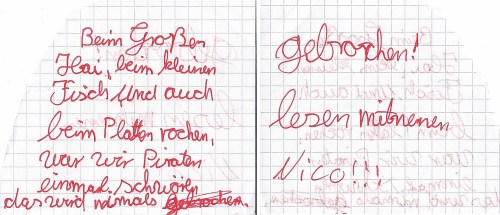 Beim Großen
Hai, beim kleinen
Fisch und auch
beim Platten rochen,
war wir Piraten
einmal schwören
das wird nimals gebrochen.
gebrochen!
lesen mitnemen
Nico!!!